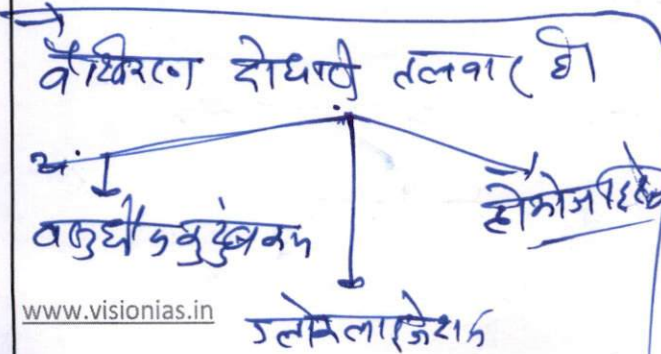 वैश्वीकरण दोधारी तलवार है।
वसुधैव कुटुंबकम
होमोजनाइजेशन
ग्लोबलाइजेशन
www.visionias.in